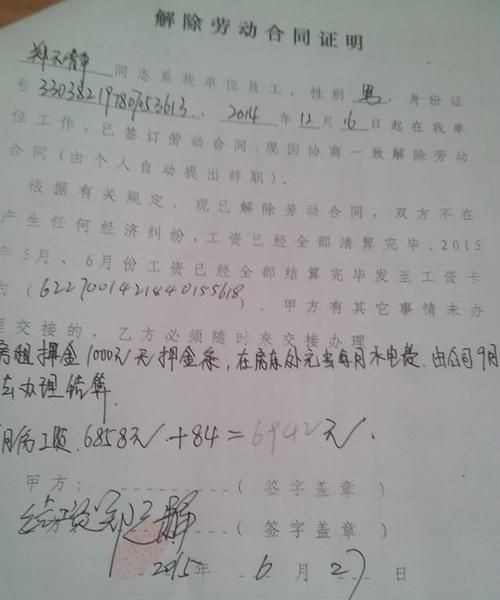 解除劳动合同证明
郑天静 同志系我单位员工，性别 男，身份证
号 330382197807053613，2014 年 12 月 16 日起在我单
位工作，已签订劳动合同，现因协商一致解除劳动
合同（由个人自动提出辞职）。
根据有关规定，现已解除劳动合同，双方不在
产生任何经济纠纷，工资已经全部清算完毕。2015
年5月、6月份工资已经全部结算完毕发至工资卡
为（6227001421840155618），甲方有其它事情未办
理交接的，乙方必须随时来交接办理
房租押金1000元 押金条，在房东处 每月水电费，由公司9月
去办理结算
工资，6858元+84=6942元。
甲方：（签字盖章）
（签字盖章）
2015年 6 月 27 日